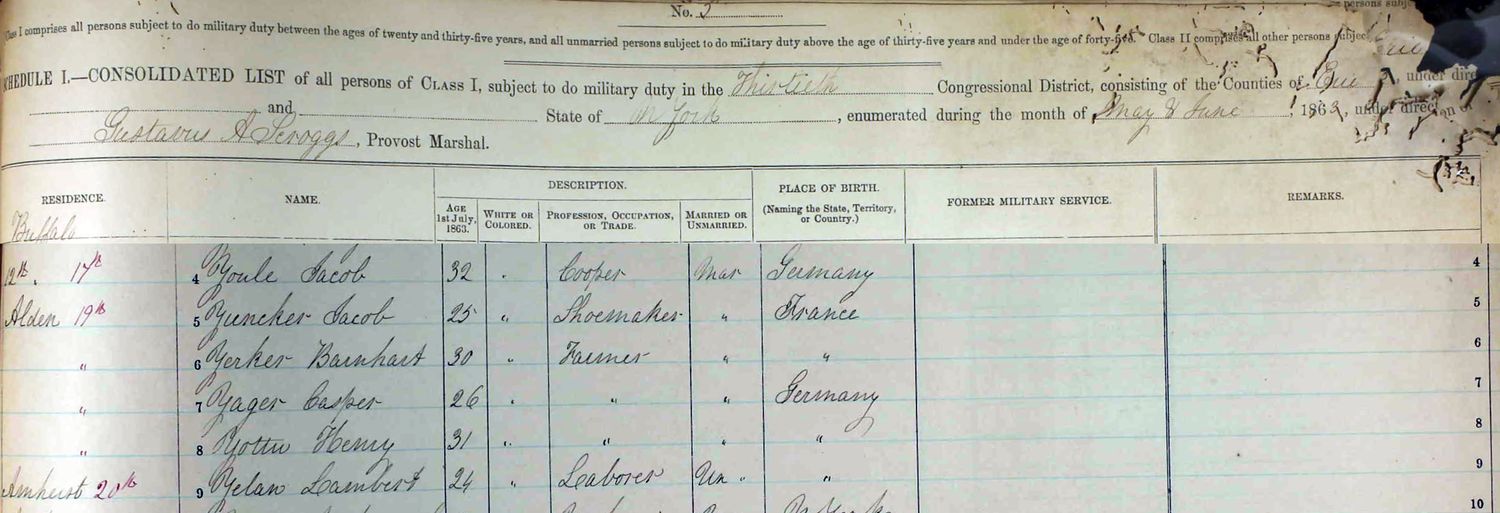 No. 5
persons subj
Class I comprises all persons subject to do military duty between the ages of twenty and thirty-five years, and all unmarried persons subject to do military duty above the age of thirty-five years and under the age of forty-five. Class II comprises all other persons subjec
SCHEDULE I.—CONSOLIDATED LIST of all persons of CLASS I, subject to do military duty in the Thirtieth Congressional District, consisting of the Counties of Erie, under dire
and State of N York, enumerated during the month of May & June, 1863, under direction of
Gustavus A Scroggs, Provost Marshal.
RESIDENCE. NAME. DESCRIPTION. PLACE OF BIRTH. (Naming the State, Territory, or Country.) FORMER MILITARY SERVICE. REMARKS.
AGE 1st July, 1863. WHITE OR COLORED. PROFESSION, OCCUPATION, OR TRADE. MARRIED OR UNMARRIED.
Buffalo
12th 17th 4 Youle Jacob 32 " Cooper Mar Germany 4
Alden 19th 5 Yuncker Jacob 25 " Shoemaker " France 5
" 6 Yerker Barnhart 30 " Farmer " " 6
" 7 Yager Casper 26 " " " Germany 7
" 8 Henry 31 " " " " 8
Amherst 20th 9 Yelan Lambert 24 " Laborer Un " " 9
10